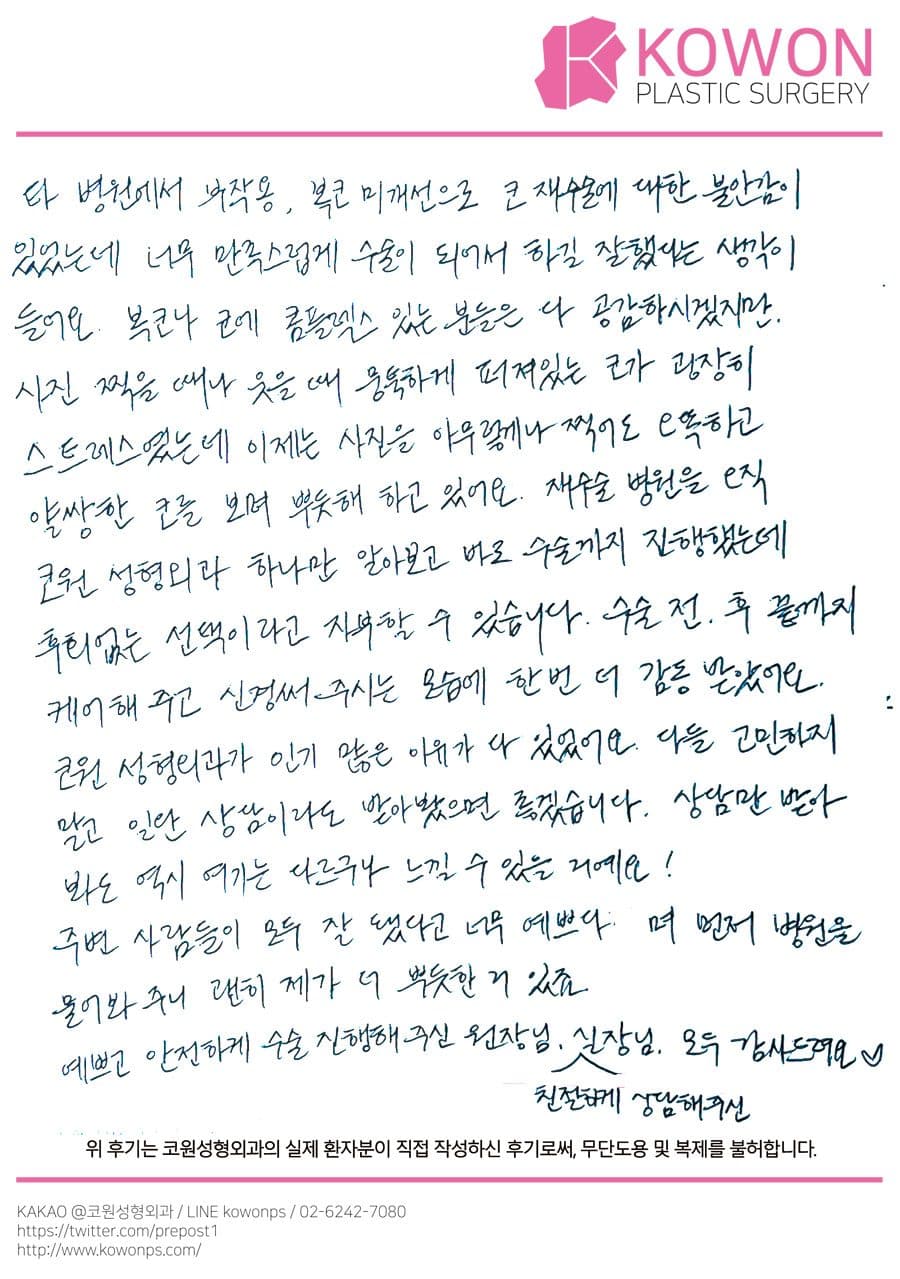 KOWON
PLASTIC SURGERY
타 병원에서 부작용, 복코 미개선으로 코 재수술에 대한 불안감이
있었는데 너무 만족스럽게 수술이 되어서 하길 잘했다는 생각이
들어요. 복코나 코에 콤플렉스 있는 분들은 다 공감하시겠지만.
사진 찍을 때나 웃을 때 뭉툭하게 퍼져있는 코가 굉장히
스트레스였는데 이제는 사진을 아무렇게나 찍어도 오똑하고
얄쌍한 코를 보며 뿌듯해 하고 있어요. 재수술 병원을 오직
코원 성형외과 하나만 알아보고 바로 수술까지 진행했는데
후회없는 선택이라고 자부할 수 있습니다. 수술 전. 후 끝까지
케어해 주고 신경써 주시는 모습에 한번 더 감동 받았어요.
코원 성형외과가 인기 많은 이유가 다 있었어요. 다들 고민하지
말고 일단 상담이라도 받아봤으면 좋겠습니다. 상담만 받아
봐도 역시 여기는 다르구나 느낄 수 있을 거예요!
주변 사람들이 모두 잘 됐다고 너무 예쁘다. 며 먼저 병원을
물어봐 주니 괜히 제가 더 뿌듯한 거 있죠
예쁘고 안전하게 수술 진행해 주신 원장님. 실장님. 모두 감사드려요♡
친절하게 상담해주신
위 후기는 코원성형외과의 실제 환자분이 직접 작성하신 후기로써, 무단도용 및 복제를 불허합니다.
KAKAO @코원성형외과 / LINE kowonps / 02-6242-7080
https://twitter.com/prepost1
http://www.kowonps.com/